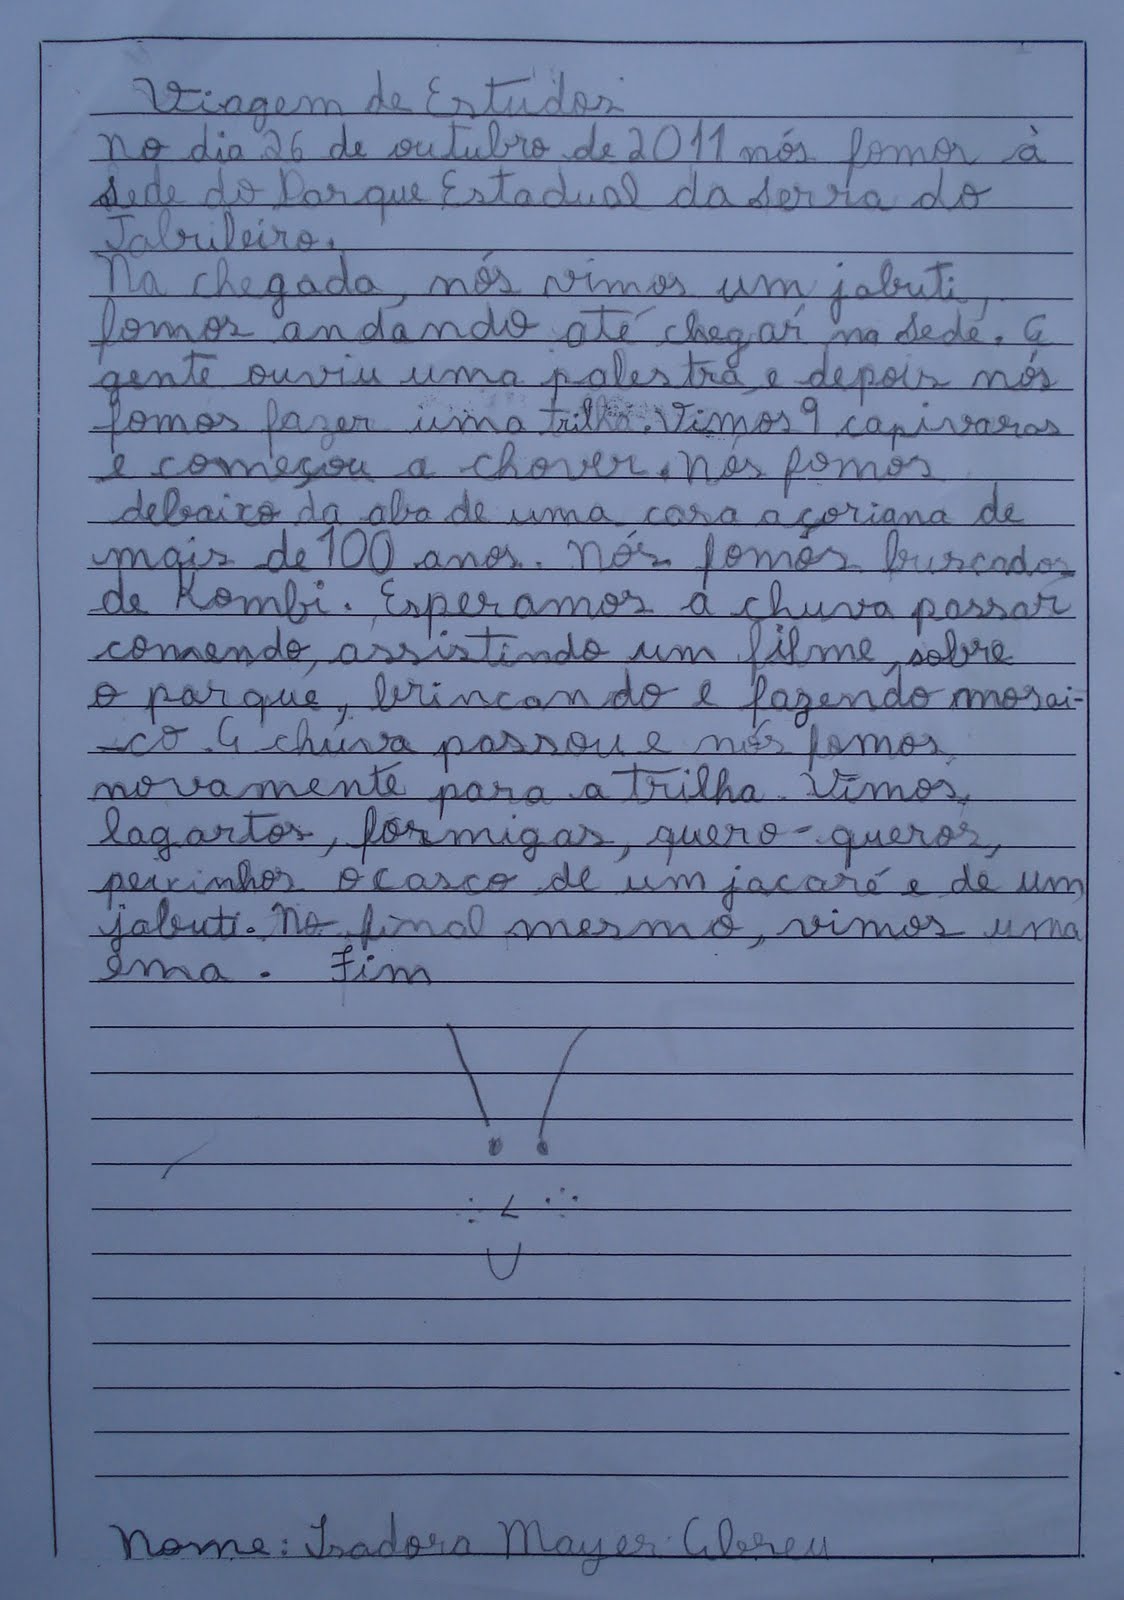 Viagem de Estudos
No dia 26 de outubro de 2011 nós fomos à
sede do Parque Estadual da Serra do
Tabuleiro.
Na chegada, nós vimos um jabuti,
fomos andando até chegar na sede. A
gente ouviu uma palestra e depois nós
fomos fazer uma trilha. Vimos 9 capivaras
e começou a chover. Nós fomos
debaixo da aba de uma casa açoriana de
mais de 100 anos. Nós fomos buscados
de Kombi. Esperamos a chuva passar
comendo, assistindo um filme, sobre
o parque, brincando e fazendo mosai-
-co. A chuva passou e nós fomos
novamente para a trilha. Vimos,
lagartos, formigas, quero-queros,
peixinhos o casco de um jacaré e de um
jabuti. No final mesmo, vimos uma
ema. Fim
Nome: Isadora Mayer Abreu